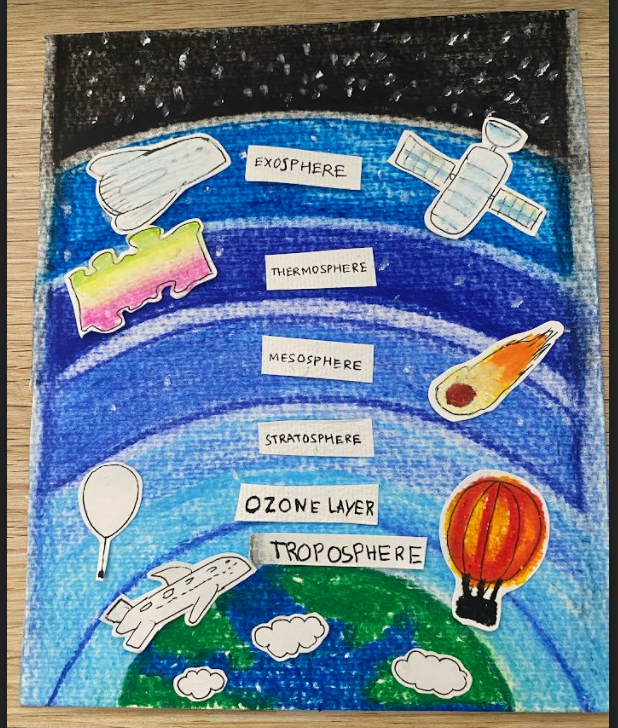 EXOSPHERE
THERMOSPHERE
MESOSPHERE
STRATOSPHERE
OZONE LAYER
TROPOSPHERE